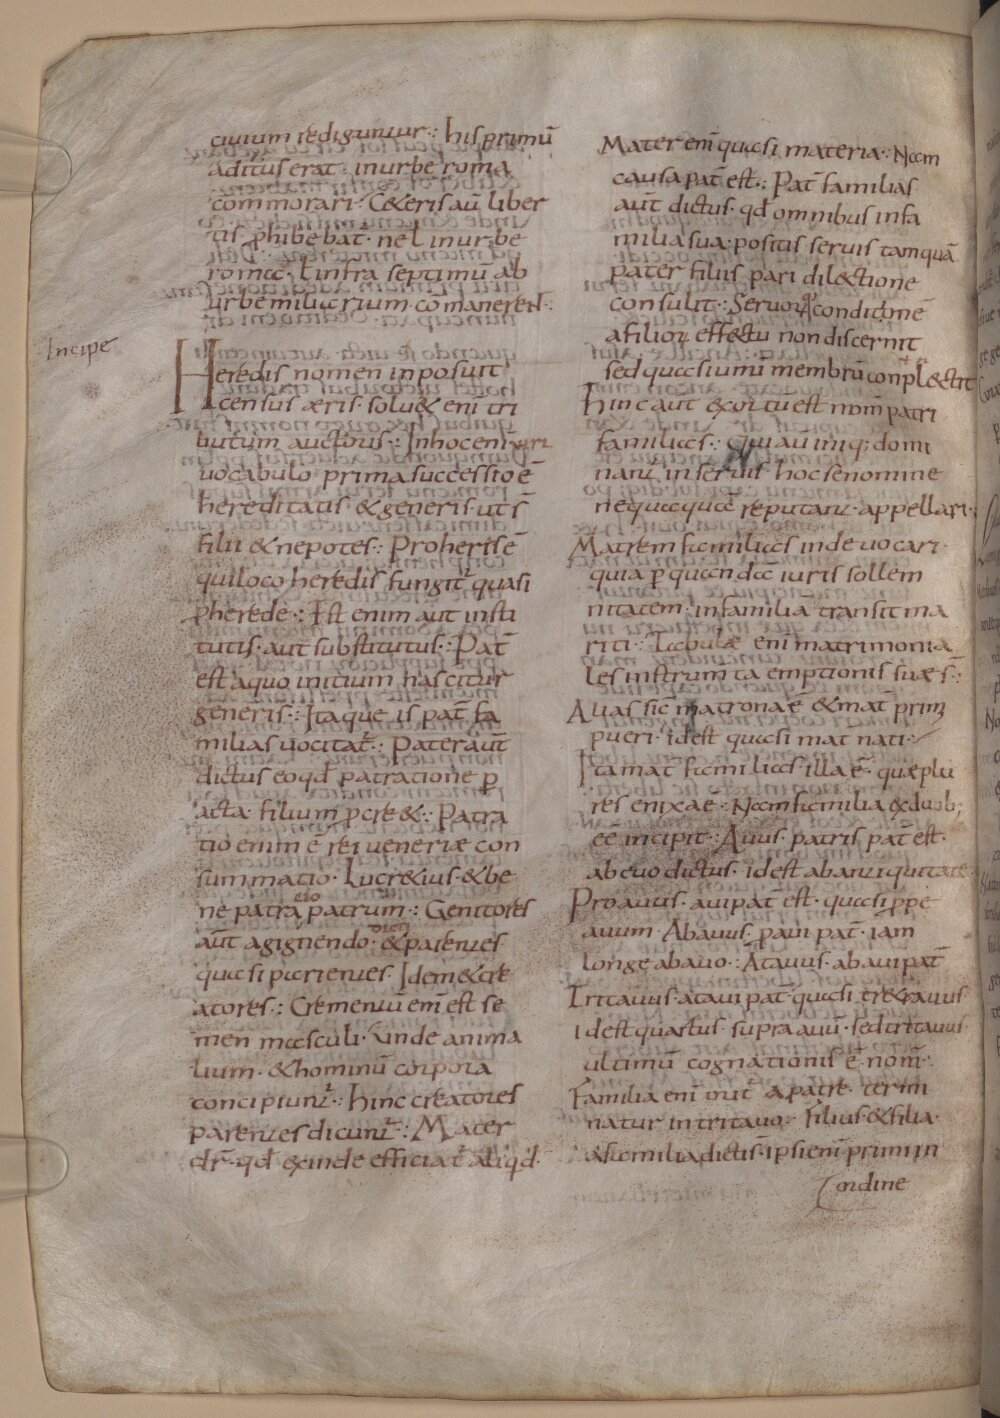 civium rediguntur·: his primū
aditus erat· in urbe roma
commorari·: C&eris aū liber
tis ꝓhibebat̄· ne ł in urbe
romae· ł infra septimū ab
urbe miliarium· cōmanerent·:
Incipe
Heredis nomen inposuit
census aeris· solu& enī tri
butum auctoris·: In hoc enī
uocabulo· prima successio ē
hereditatis &generis· ut s̄
filii &nepotes·: Proheris ē
qui loco heredis fungit̄ quasi
ꝓherede·: Est enim aut insti
tutis· aut substitutus·: Pat̄
est a quo initium nascitur
generis·: Itaque is pat̄ fa
milias uocitat̄·: Pater aut̄
dictus eo qd̄ patratione ꝑ
acta· filium ꝓcre&·: Patra
tio enim ē rei ueneriae con
summatio· Lucr&ius· &be
ne patra patrum·: Genitores
aūt a gignendo· &parentes
quasi parientes· Idem &cre
atores·: Crementū enī est se
men masculi· Unde anima
lium· &hominū corpora
concipiunt̄·: Hinc creatores
parentes dicunt̄·: Mater
dr̄· qd̄ exinde efficiat̄ aliqd·
Mater enī quasi materia·: Nam
causa pat̄ est·: Pat̄ familias
aūt dictus· qd̄ omnibus in fa
milia sua· positis seruis tamquā
pater filiis pari dil&ctione
consulit·: Seruorꝝ condicionē
a filiorꝝ eff&ctu non discernit
sed quasi unū membrū conpl&ctit
Hinc aūt exortū est nom̄ patri
familias·: Qui aū iniq; domi
nant̄ in seruis hoc se nomine
nequaquā reputant· appellari·
Matrem familias inde uocari·
quia ꝑ quandā iuris sollem
nitatem· in familia transit ma
riti·: Tabulae enī matrimonia
les instrumta emptionis suae s̄·:
Alias sic matrona ē &mat̄ primi
pueri· id est quasi mat̄ nati·
Ita mat̄ familias illa ē· quae plu
res enixa ē· Nam familia ex duob;
eē incipit·: Auus· patris pat̄ est·
ab euo dictus· id est ab antiquitate
Proauus· aui pat̄ est· quasi ꝓpe
auum· Abauus ꝓaui pat̄· iam
longe ab auo·: Atauus· abaui pat̄
Tritauus· ataui pat̄ quasi t&rauus
id est quartus· supra auū· sed tritauus
ultimū cognationis ē nom̄·
Familia enī orit̄ a patre· termi
natur in tritauo· Filius &filia·
a familia dictis· ipsi enī primi in
ordine